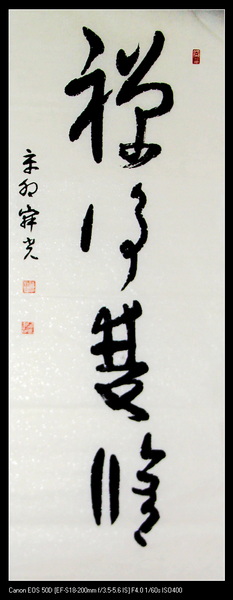 禅净雙修
辛卯
光
Canon EOS 50D [EF-S18-200mm f/3.5-5.6 IS] F4.0 1/60s ISO400